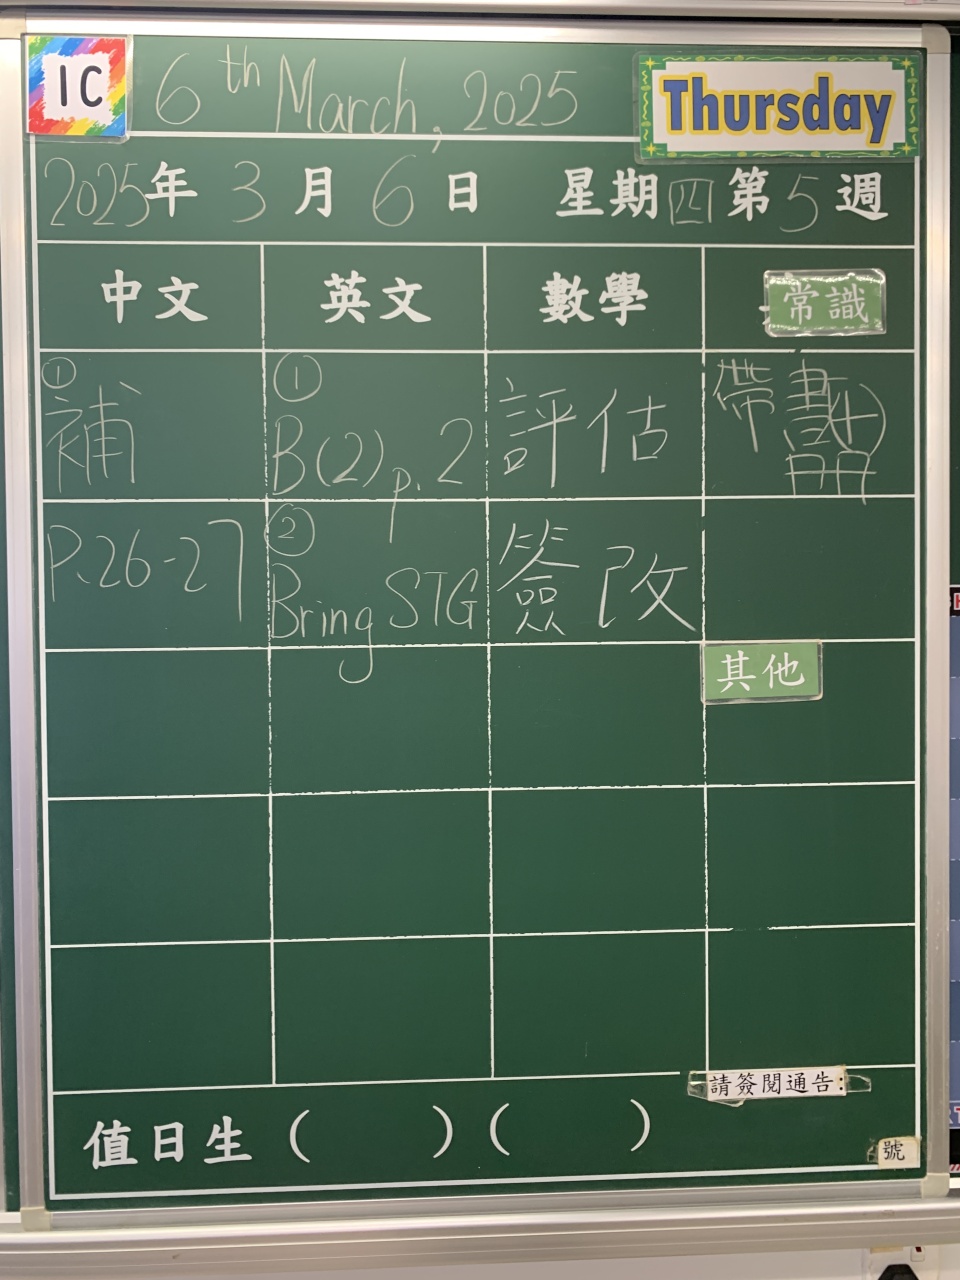 1C 6th March, 2025 Thursday
2025年 3月 6日 星期四 第5週
中文 英文 數學 常識
① ①
補 B(2) p. 2 評估 帶書(4)
冊
P.26-27 ② 簽改
Bring STG
其他
請簽閱通告:
值日生 ( ) ( )
號